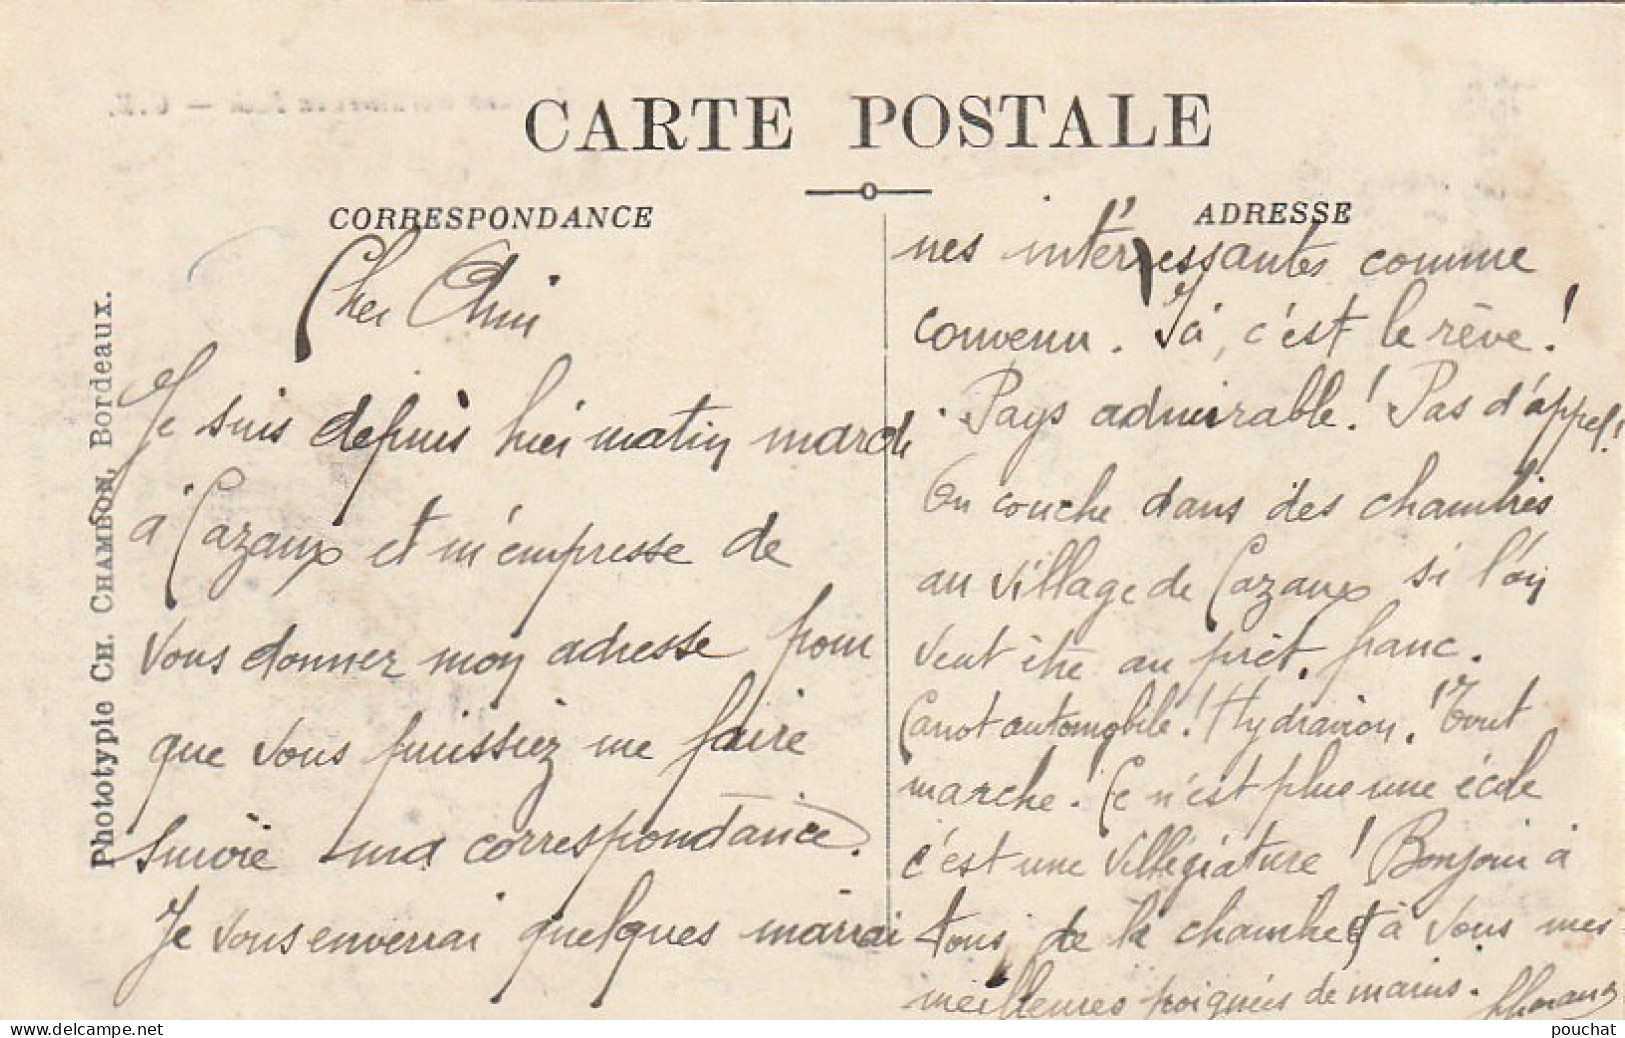 CARTE POSTALE
CORRESPONDANCE
Cher Ami
Je suis depuis hier matin mardi
à Cazaux et m'empresse de
vous donner mon adresse pour
que vous puissiez me faire
suivre ma correspondance.
Je vous enverrai quelques marrai
ADRESSE
nes intéressantes comme
convenu. Ici, c'est le rêve!
Pays admirable! Pas d'appel!
On couche dans des chambres
au village de Cazaux si l'on
veut être au prêt franc.
Canot automobile! Hydravion! Tout
marche! Ce n'est plus une école
c'est une villégiature! Bonjour à
tous de la chambre et à vous mes
meilleures poignées de mains.
Phototypie CH. CHAMBON, Bordeaux.
pouchat